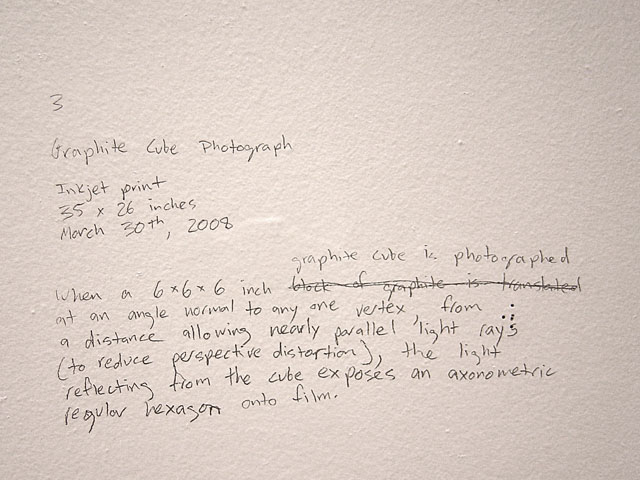 3
Graphite Cube Photograph
Inkjet print
35 x 26 inches
March 30th, 2008
graphite cube is photographed
When a 6×6×6 inch block of graphite is translated
at an angle normal to any one vertex, from
a distance allowing nearly parallel light rays
(to reduce perspective distortion), the light
reflecting from the cube exposes an axonometric
regular hexagon onto film.